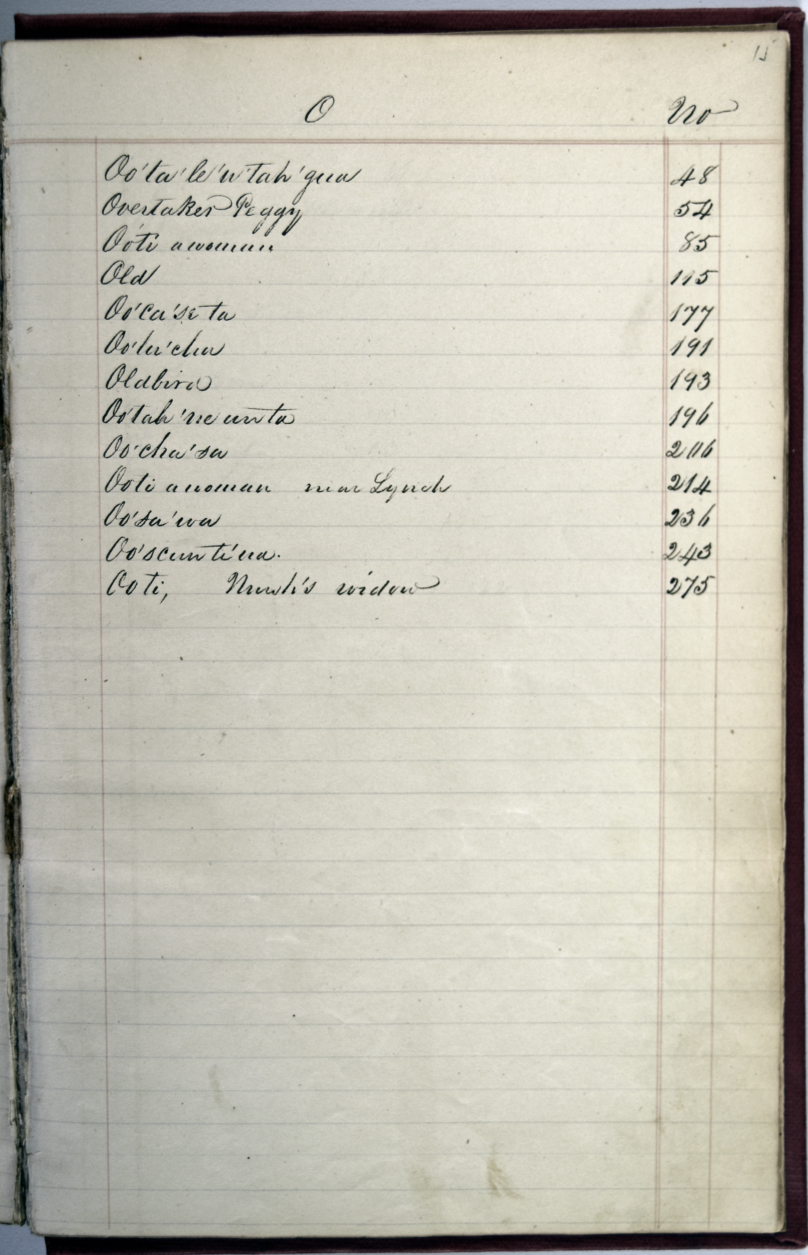 15
O No
Oo'ta'le'n'tah'gua 48
Overtaker Peggy 54
Ooti a woman 85
Old 115
Oo'ca'se ta 177
Oo'la'cha 191
Oldbird 193
Ootah'ne un ta 196
Oo'cha'sa 206
Ooti a woman near Lynch 214
Oo'sa'wa 236
Oo'scunti'na. 243
Ooti, widow 275